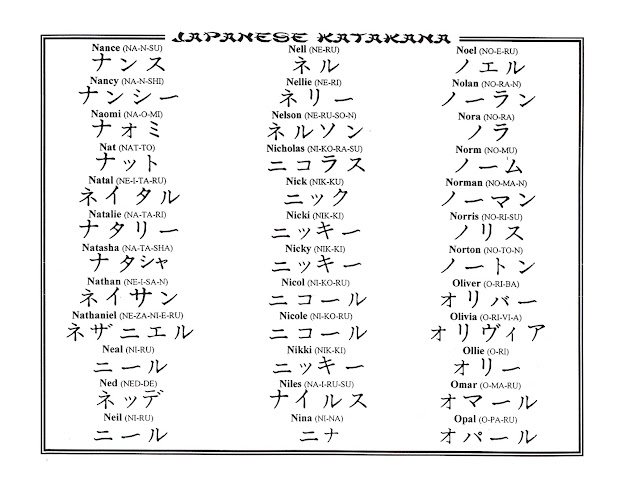 JAPANESE KATAKANA
Nance (NA-N-SU)
ナンス
Nancy (NA-N-SHI)
ナンシー
Naomi (NA-O-MI)
ナォミ
Nat (NAT-TO)
ナット
Natal (NE-I-TA-RU)
ネイタル
Natalie (NA-TA-RI)
ナタリー
Natasha (NA-TA-SHA)
ナタシャ
Nathan (NE-I-SA-N)
ネイサン
Nathaniel (NE-ZA-NI-E-RU)
ネザニエル
Neal (NI-RU)
ニール
Ned (NED-DE)
ネッデ
Neil (NI-RU)
ニール
Nell (NE-RU)
ネル
Nellie (NE-RI)
ネリー
Nelson (NE-RU-SO-N)
ネルソン
Nicholas (NI-KO-RA-SU)
ニコラス
Nick (NIK-KU)
ニック
Nicki (NIK-KI)
ニッキー
Nicky (NIK-KI)
ニッキー
Nicol (NI-KO-RU)
ニコール
Nicole (NI-KO-RU)
ニコール
Nikki (NIK-KI)
ニッキー
Niles (NA-I-RU-SU)
ナイルス
Nina (NI-NA)
ニナ
Noel (NO-E-RU)
ノエル
Nolan (NO-RA-N)
ノーラン
Nora (NO-RA)
ノラ
Norm (NO-MU)
ノーム
Norman (NO-MA-N)
ノーマン
Norris (NO-RI-SU)
ノリス
Norton (NO-TO-N)
ノートン
Oliver (O-RI-BA)
オリバー
Olivia (O-RI-VI-A)
オリヴィア
Ollie (O-RI)
オリー
Omar (O-MA-RU)
オマール
Opal (O-PA-RU)
オパール